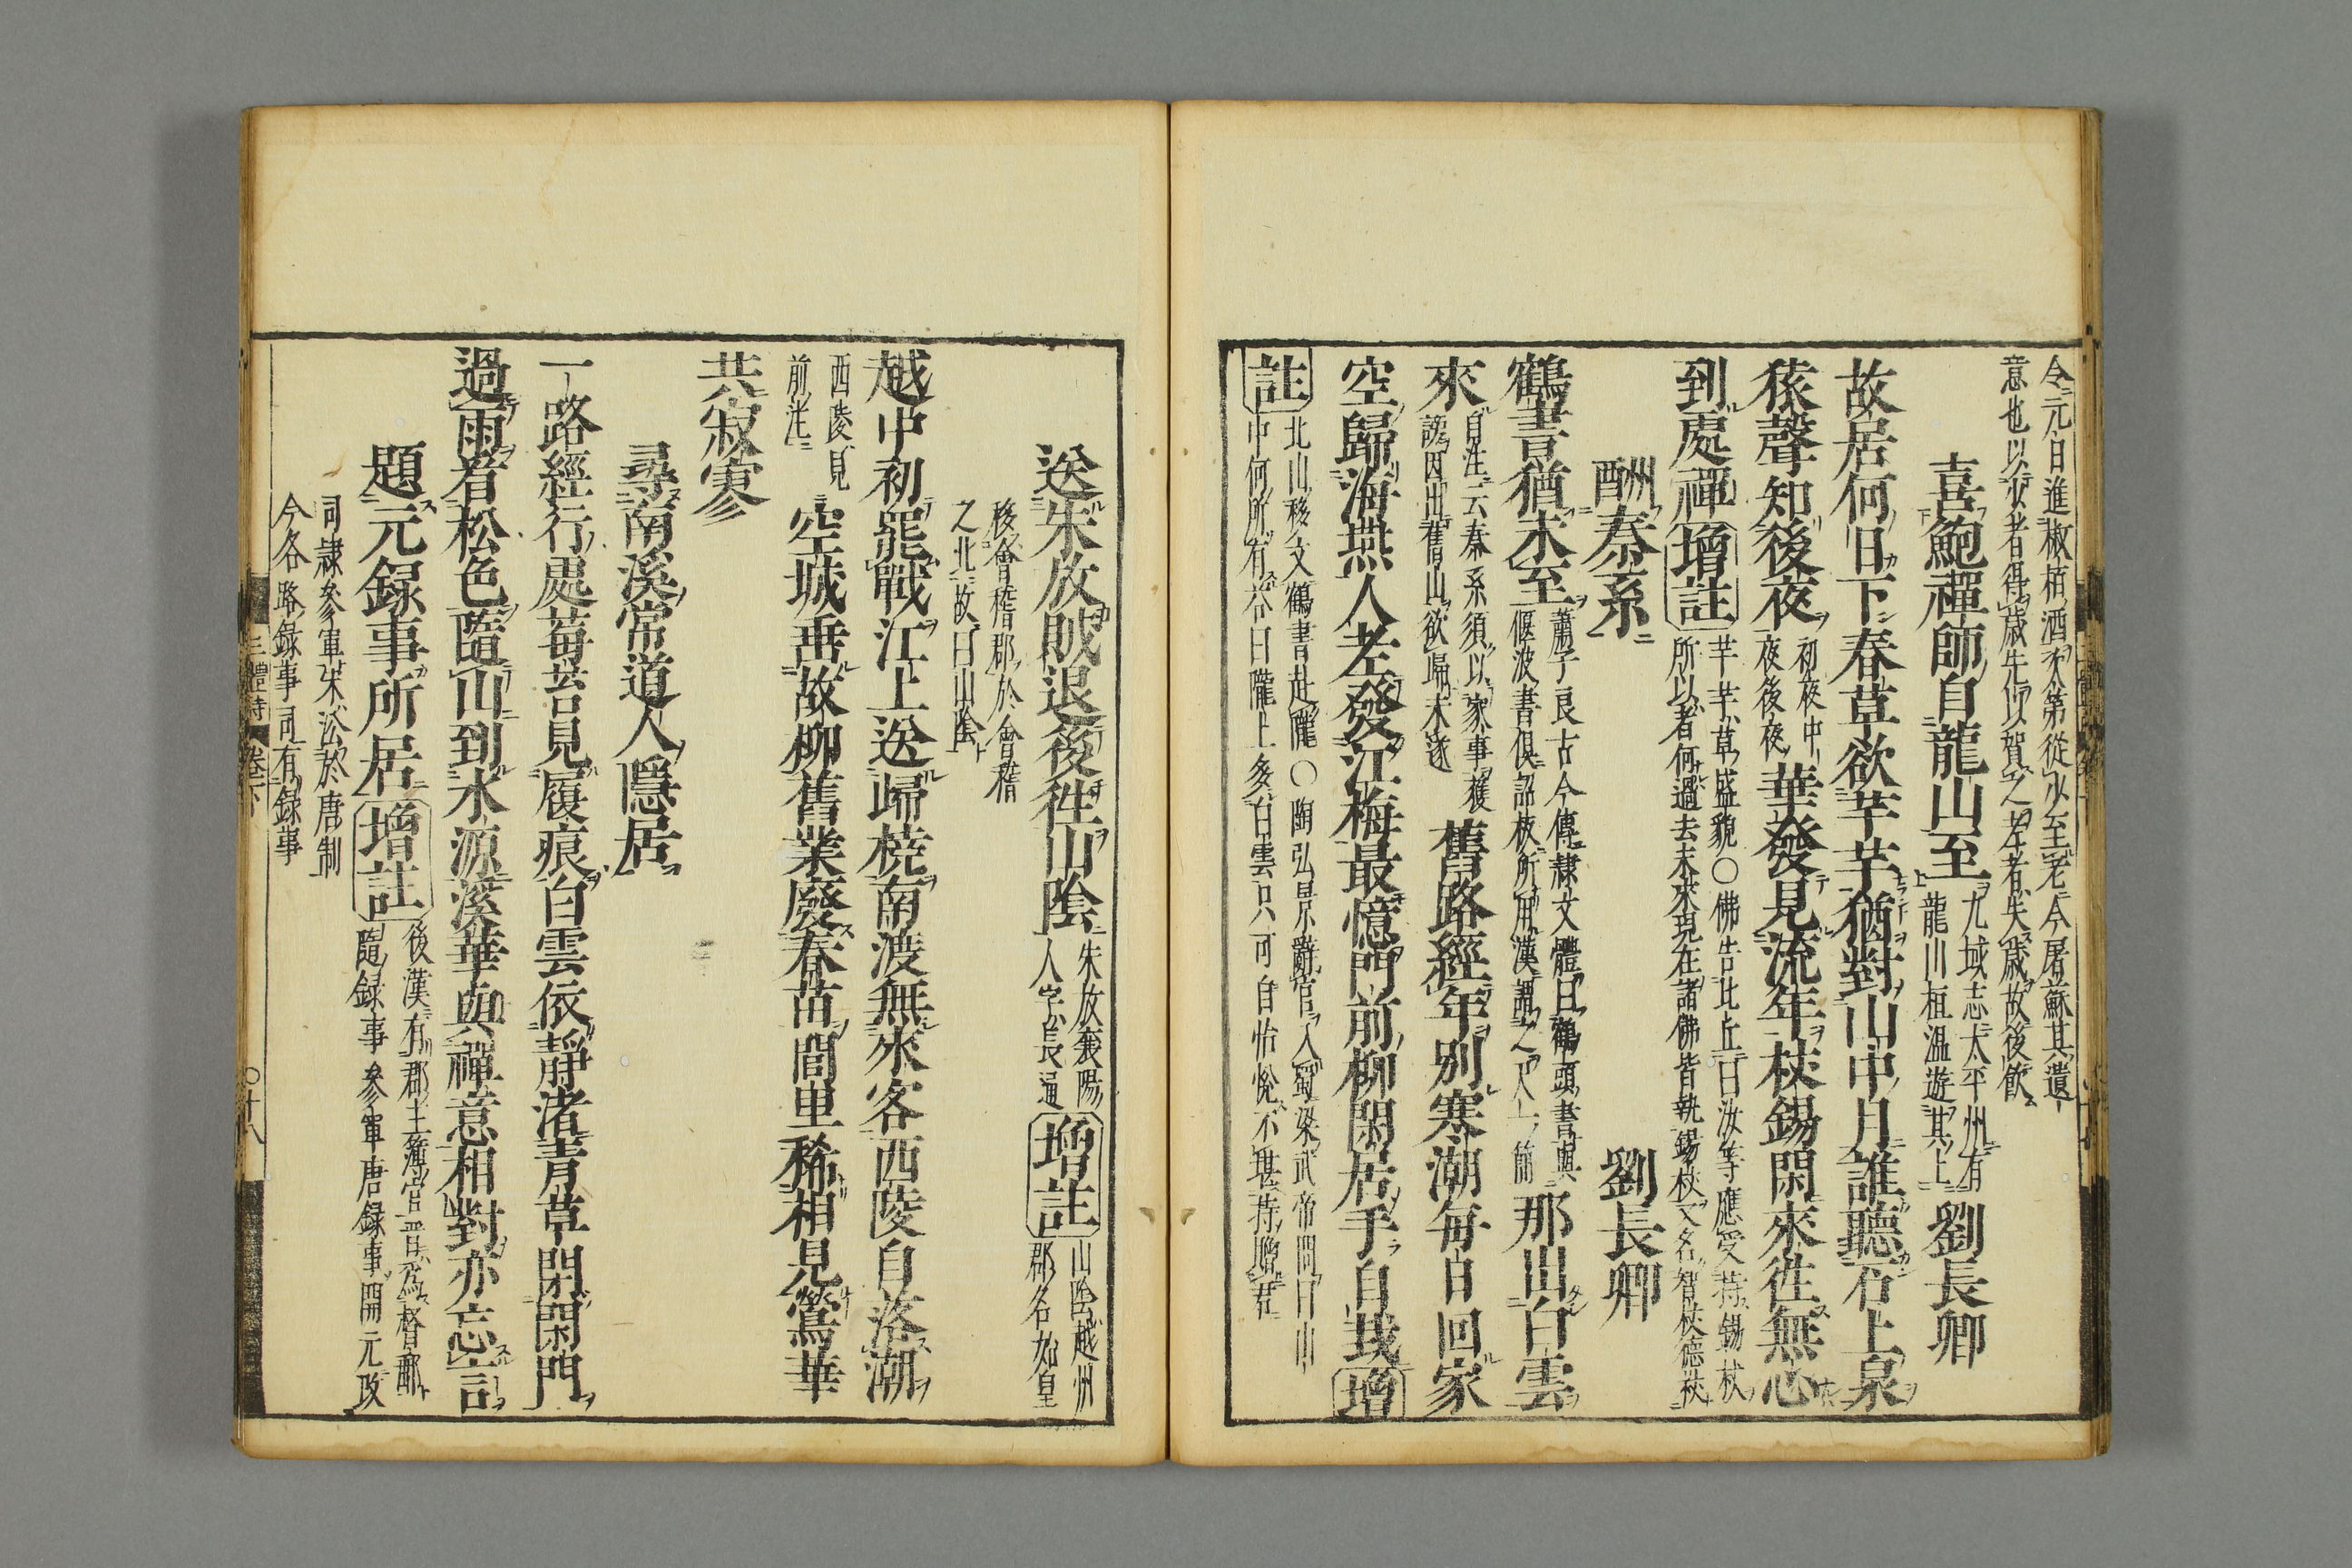 令元日進椒栢酒次第從少至老今屠蘇其遺
意也以少者得歲先以賀之老者失歲故後飲
喜鮑禪師自龍山至 九域志太平州有龍山桓溫遊其上 劉長卿
故居何日下春草欲芊芊猶對山中月誰聽石上泉
猿聲知後夜 初夜中夜後夜 華發見流年杖錫閑來往無心
到處禪 增註 芊芊草盛貌○佛告比丘曰汝等應受持錫杖所以者何過去未來現在諸佛皆執錫杖又名智杖德杖
酬秦系 劉長卿
鶴書猶未至 蕭子良古今傳隷文體曰鶴頭書與偃波書俱詔板所用漢謂之尺一簡 那出白雲
來 自注云秦系須以家事獲謗因出舊山欲歸未遂 舊路經年別寒潮每日回家
空歸海燕人老發江梅最憶門前柳閑居手自栽 增
註 北山移文鶴書赴隴○陶弘景辭官入蜀梁武帝問曰山中何所有答曰隴上多白雲只可自怡悅不堪持贈君
送朱放賊退後徃山陰 朱放襄陽人字長通 增註 山陰越州郡名始皇
移會稽郡於會稽之北故曰山陰
越中初罷戰江上送歸橈南渡無來客西陵自落潮
西陵見前注 空城垂故柳舊業廢春苗閭里稀相見鶯華
共寂寥
尋南溪常道人隱居
一路經行處莓苔見履痕白雲依靜渚青草閉閑門
過雨看松色隨山到水源溪華與禪意相對亦忘言
題元錄事所居 增註 後漢有郡主簿官晉爲督郵隨錄事參軍唐錄事開元改
司隷參軍朱沿於唐制今各路錄事司有錄事
三體詩 卷三下 ○十八